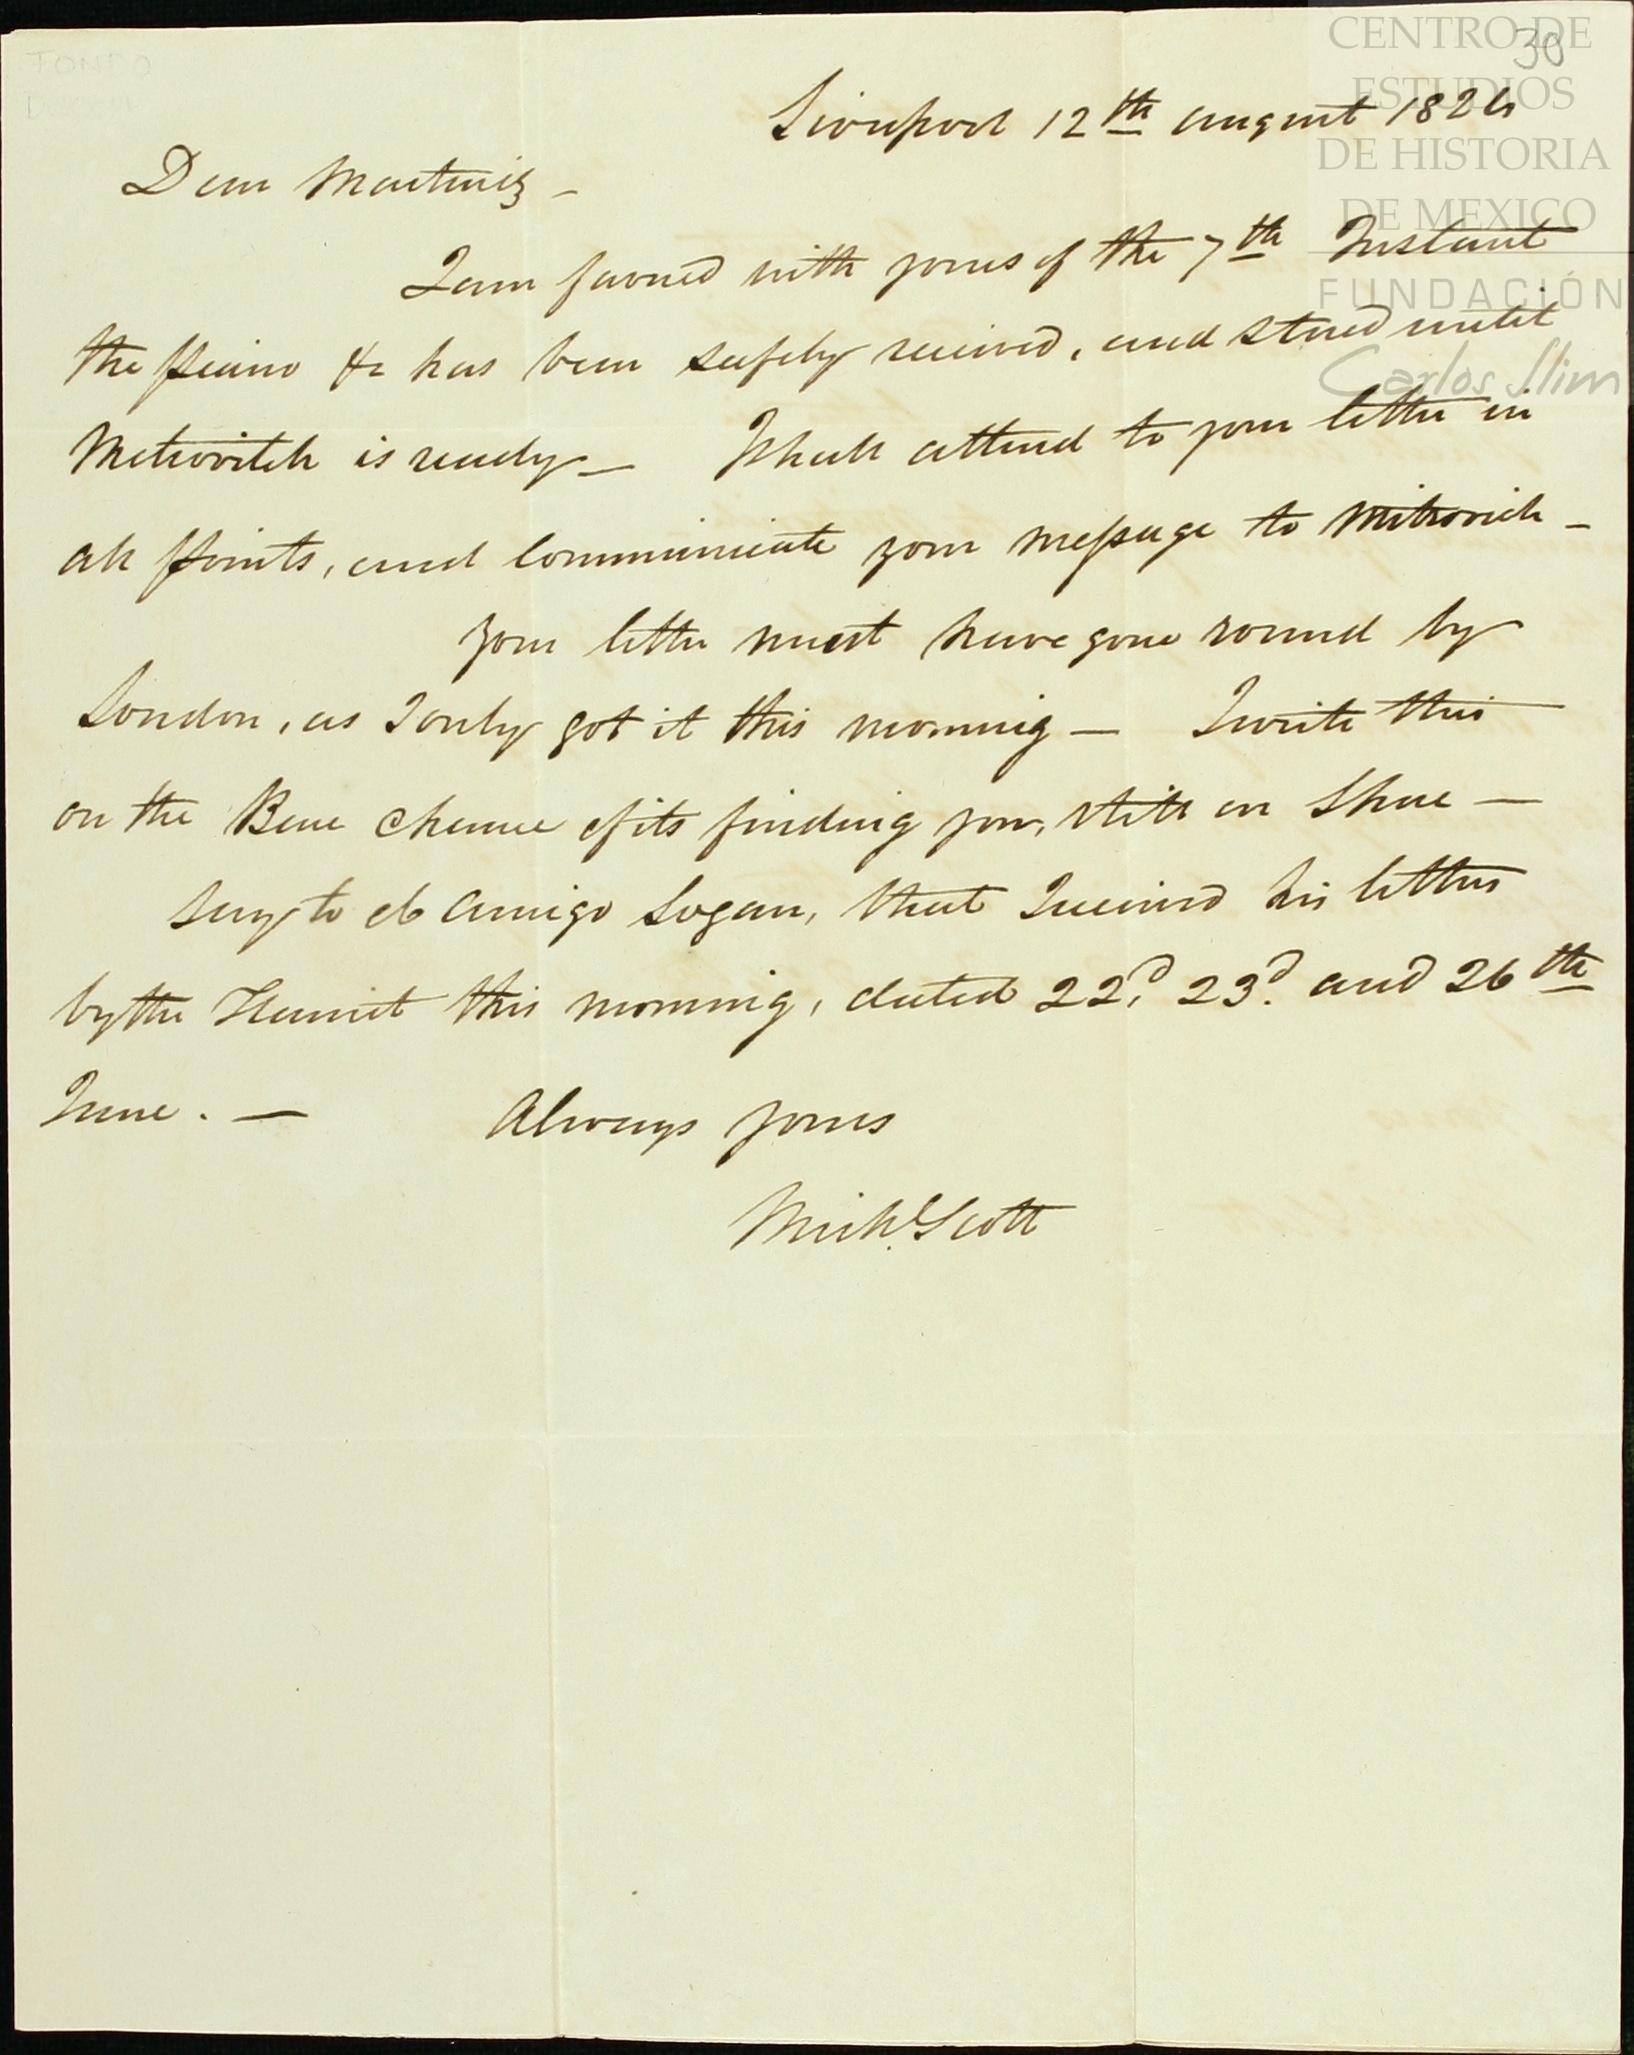 FONDO
30
CENTRO DE
ESTUDIOS
DE HISTORIA
DE MEXICO
FUNDACIÓN
Carlos Slim
Liverpool 12th august 182
Dear Martinez -
I am favored with yours of the 7th Instant
the piano &c has been safely received, and stored until
Metrovitch is ready - I shall attend to your letter in
all points, and Communicate your message to Mitrovich -
your letter must have gone round by
London, as I only got it this morning - I write this
on the Bare chance of its finding you, still on Shore -
Say to el amigo Logan, that I received his letters
by the this morning, dated 22d, 23d. and 26th
June. - Always yours
Mich. Scott